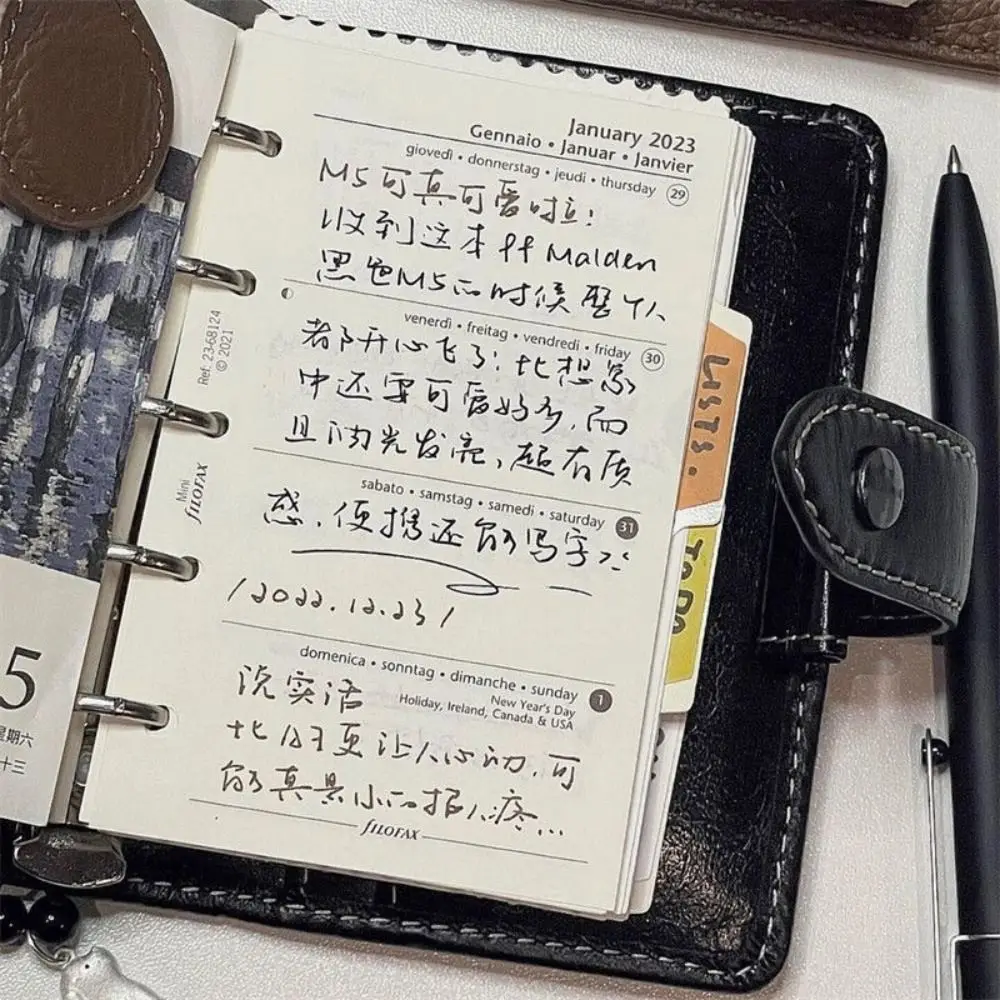 January 2023
Gennaio • Januar • Janvier
giovedì • donnerstag • jeudi • thursday 29
M5可真可爱哇！
收到这本ff Malden
黑色M5的时候整个人
venerdì • freitag • vendredi • friday 30
都开心飞了！比想象
中还要可爱好多，而
且闪光发亮、超有质
sabato • samstag • samedi • saturday 31
感、便携还能写字
/2022.12.23/
domenica • sonntag • dimanche • sunday 1
New Year's Day
Holiday, Ireland, Canada & USA
说实话
比A7更让人心动，可
能真是小的招人疼...
fILOFAX
Ref: 23-68124
© 2021
Mini
fILOFAX
LISTS.
TODO
5
星期六
十三